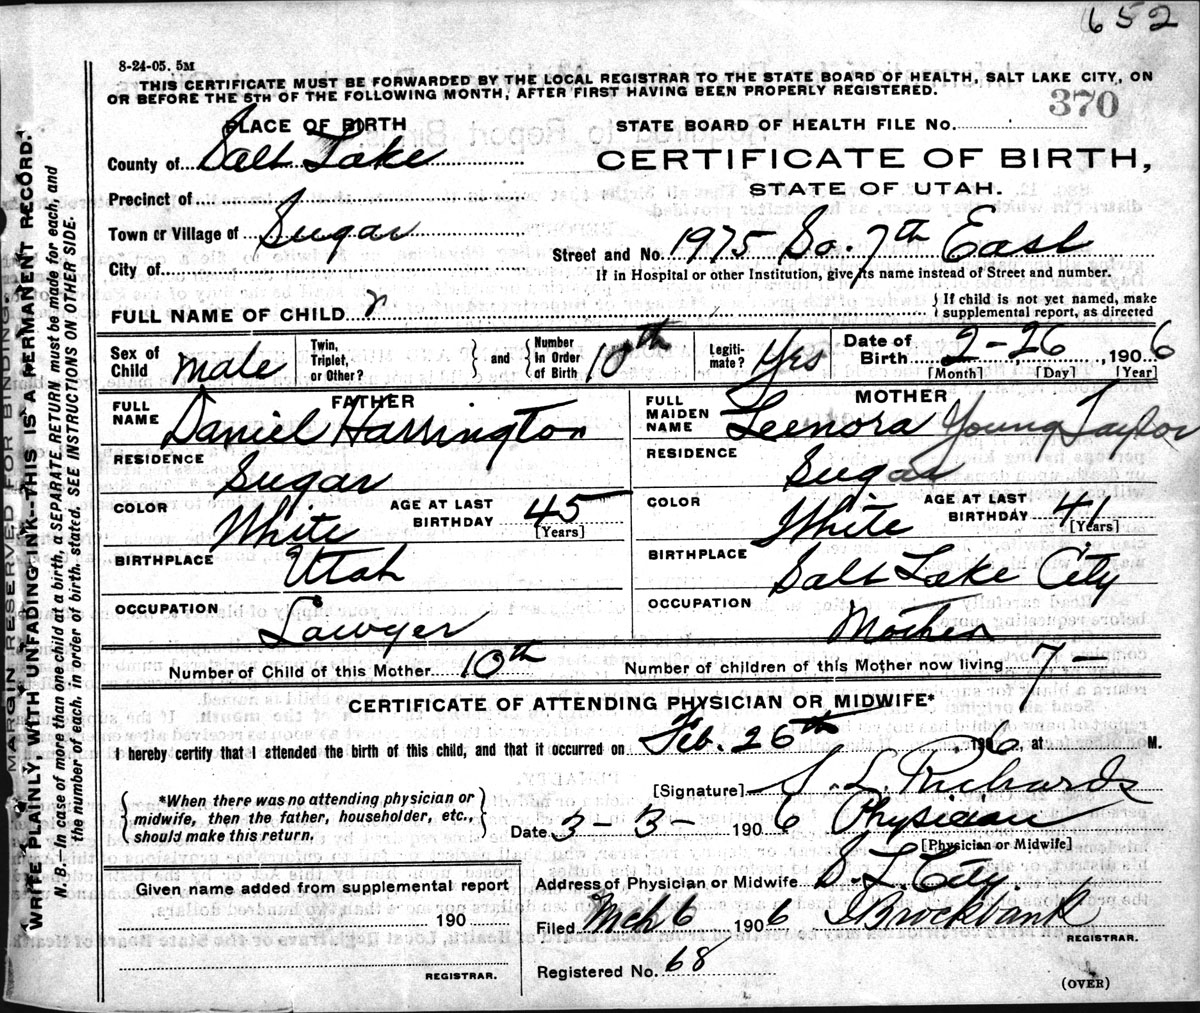 652
8-24-05. 5M
THIS CERTIFICATE MUST BE FORWARDED BY THE LOCAL REGISTRAR TO THE STATE BOARD OF HEALTH, SALT LAKE CITY, ON
OR BEFORE THE 5TH OF THE FOLLOWING MONTH, AFTER FIRST HAVING BEEN PROPERLY REGISTERED.
370
PLACE OF BIRTH
STATE BOARD OF HEALTH FILE No.
County of Salt Lake
CERTIFICATE OF BIRTH,
STATE OF UTAH.
Precinct of
Town or Village of Sugar
Street and No. 1975 So. 7th East
City of
If in Hospital or other Institution, give its name instead of Street and number.
FULL NAME OF CHILD
If child is not yet named, make
supplemental report, as directed
Sex of Child Male
Twin, Triplet, or Other?
and
Number in Order of Birth 10th
Legitimate? Yes
Date of Birth 2-26, 1906
[Month] [Day] [Year]
FATHER
FULL NAME Daniel Harrington
RESIDENCE Sugar
COLOR White
AGE AT LAST BIRTHDAY 45
[Years]
BIRTHPLACE Utah
OCCUPATION Lawyer
MOTHER
FULL MAIDEN NAME Leenora Young Taylor
RESIDENCE Sugar
COLOR White
AGE AT LAST BIRTHDAY 41
[Years]
BIRTHPLACE Salt Lake City
OCCUPATION Mother
Number of Child of this Mother 10th
Number of children of this Mother now living 7-
CERTIFICATE OF ATTENDING PHYSICIAN OR MIDWIFE*
I hereby certify that I attended the birth of this child, and that it occurred on Feb. 26th 1906, at M.
*When there was no attending physician or
midwife, then the father, householder, etc.,
should make this return.
[Signature] S. L. Richards
Date 3-3- 1906 Physician
[Physician or Midwife]
Address of Physician or Midwife S. L. City.
Given name added from supplemental report
190
REGISTRAR.
Filed Mch 6 1906 Brockbank
REGISTRAR.
Registered No. 68
(OVER)
MARGIN RESERVED FOR BINDING.
WRITE PLAINLY, WITH UNFADING INK--THIS IS A PERMANENT RECORD.
N. B.—In case of more than one child at a birth, a SEPARATE RETURN must be made for each, and
the number of each, in order of birth, stated. SEE INSTRUCTIONS ON OTHER SIDE.